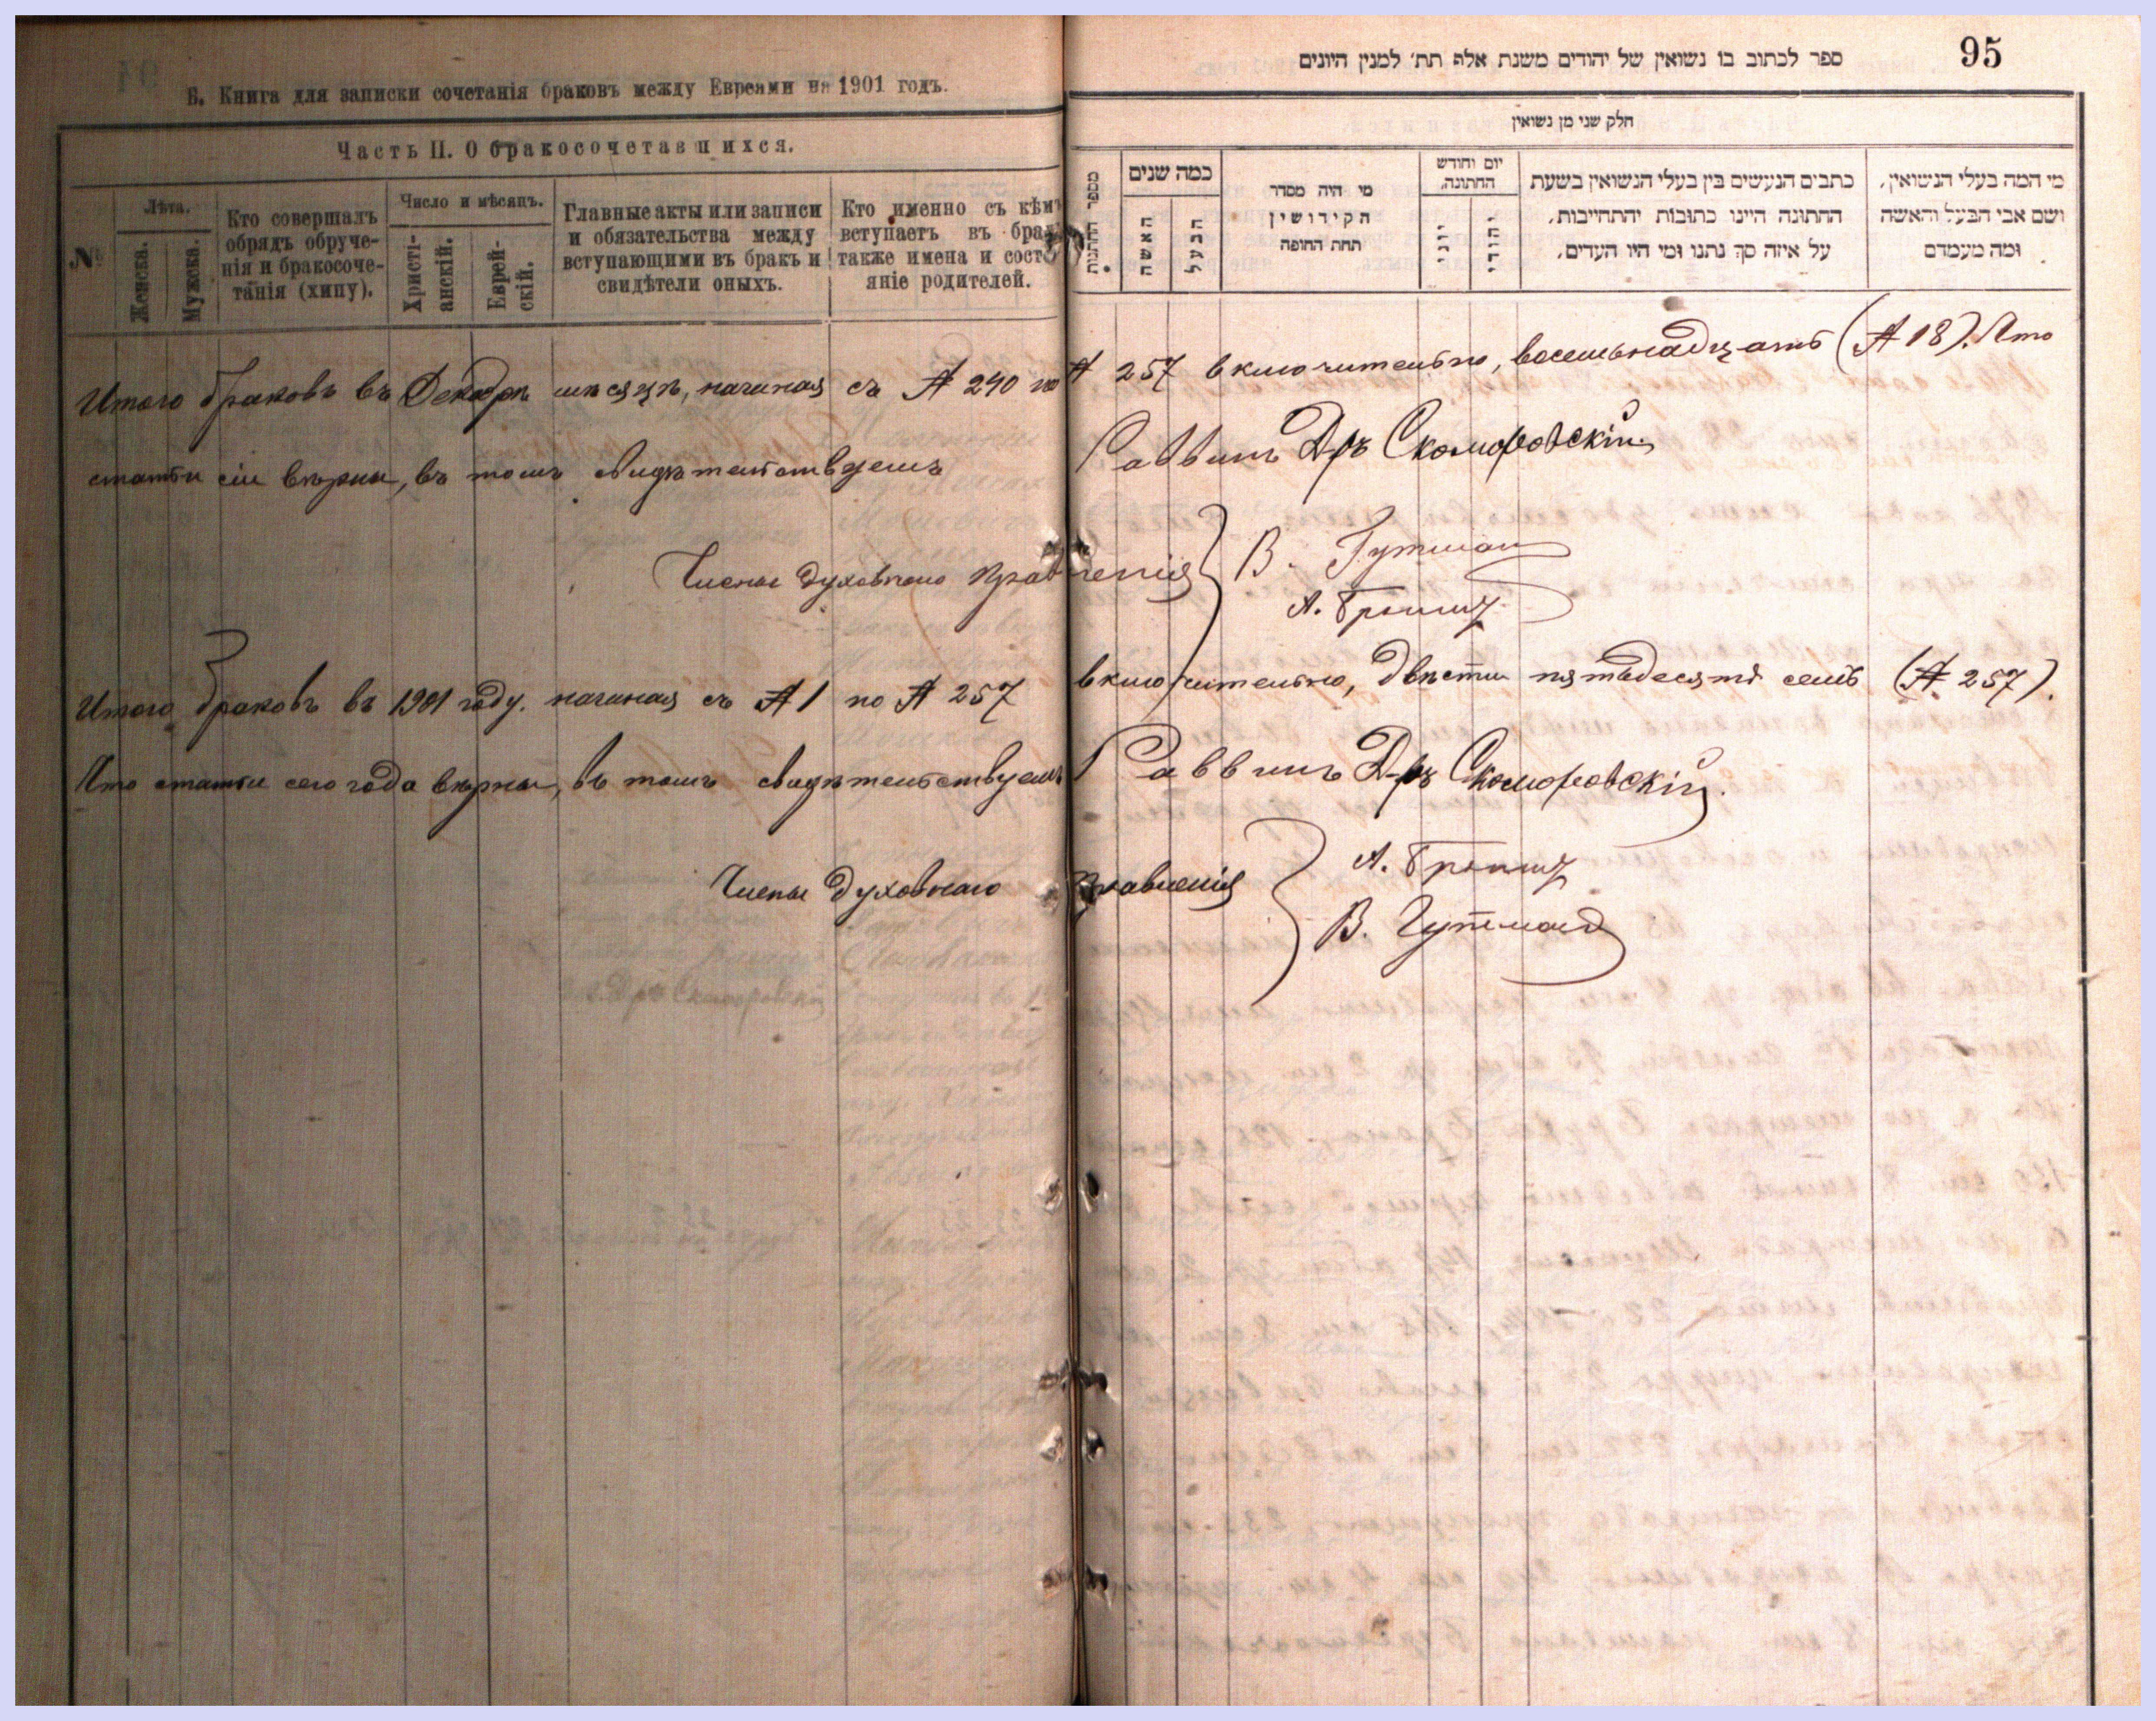 Б. Книга для записки сочетанія браковъ между Евреями на 1901 годъ.
Часть II. О бракосочетавшихся.
№
Лѣта.
Женска.
Мужска.
Кто совершалъ
обрядъ обруче-
нія и бракосоче-
танія (хипу).
Число и мѣсяцъ.
Христі-
анскій.
Еврей-
скій.
Главные акты или записи
и обязательства между
вступающими въ бракъ и
свидѣтели оныхъ.
Кто именно съ кѣмъ
вступаетъ въ бракъ
также имена и состо
яніе родителей.
95
ספר לכתוב בו נשואין של יהודים משנת אלף תת׳ למנין היונים
חלק שני מן נשואין
מספר החתונות
כמה שנים
האשה
הבעל
מי היה מסדר
הקידושין
תחת החופה
יום וחודש
החתונה.
יוני
יהודי
כתבים הנעשים בין בעלי הנשואין בשעת
החתונה היינו כתובות והתחייבות,
על איזה סך נתנו ומי היו העדים.
מי המה בעלי הנשואין,
ושם אבי הבעל והאשה
ומה מעמדם
Итого браковъ въ Декабрѣ мѣсяцѣ, начиная съ № 240 по № 257 включительно, восемьнадцать (№ 18). Что
статьи сіи вѣрны, въ томъ свидѣтельствуемъ Раввинъ Д-ръ Скоморовскій
Члены духовнаго Правленія В. Гутман
А.
Итого браковъ въ 1901 году. начиная съ № 1 по № 257 включительно, двѣсти пятьдесятъ семь (№ 257).
Что статьи сего года вѣрны, въ томъ свидѣтельствуемъ Раввинъ Д-ръ Скоморовскій.
Члены духовнаго Правленія А.
В. Гутман